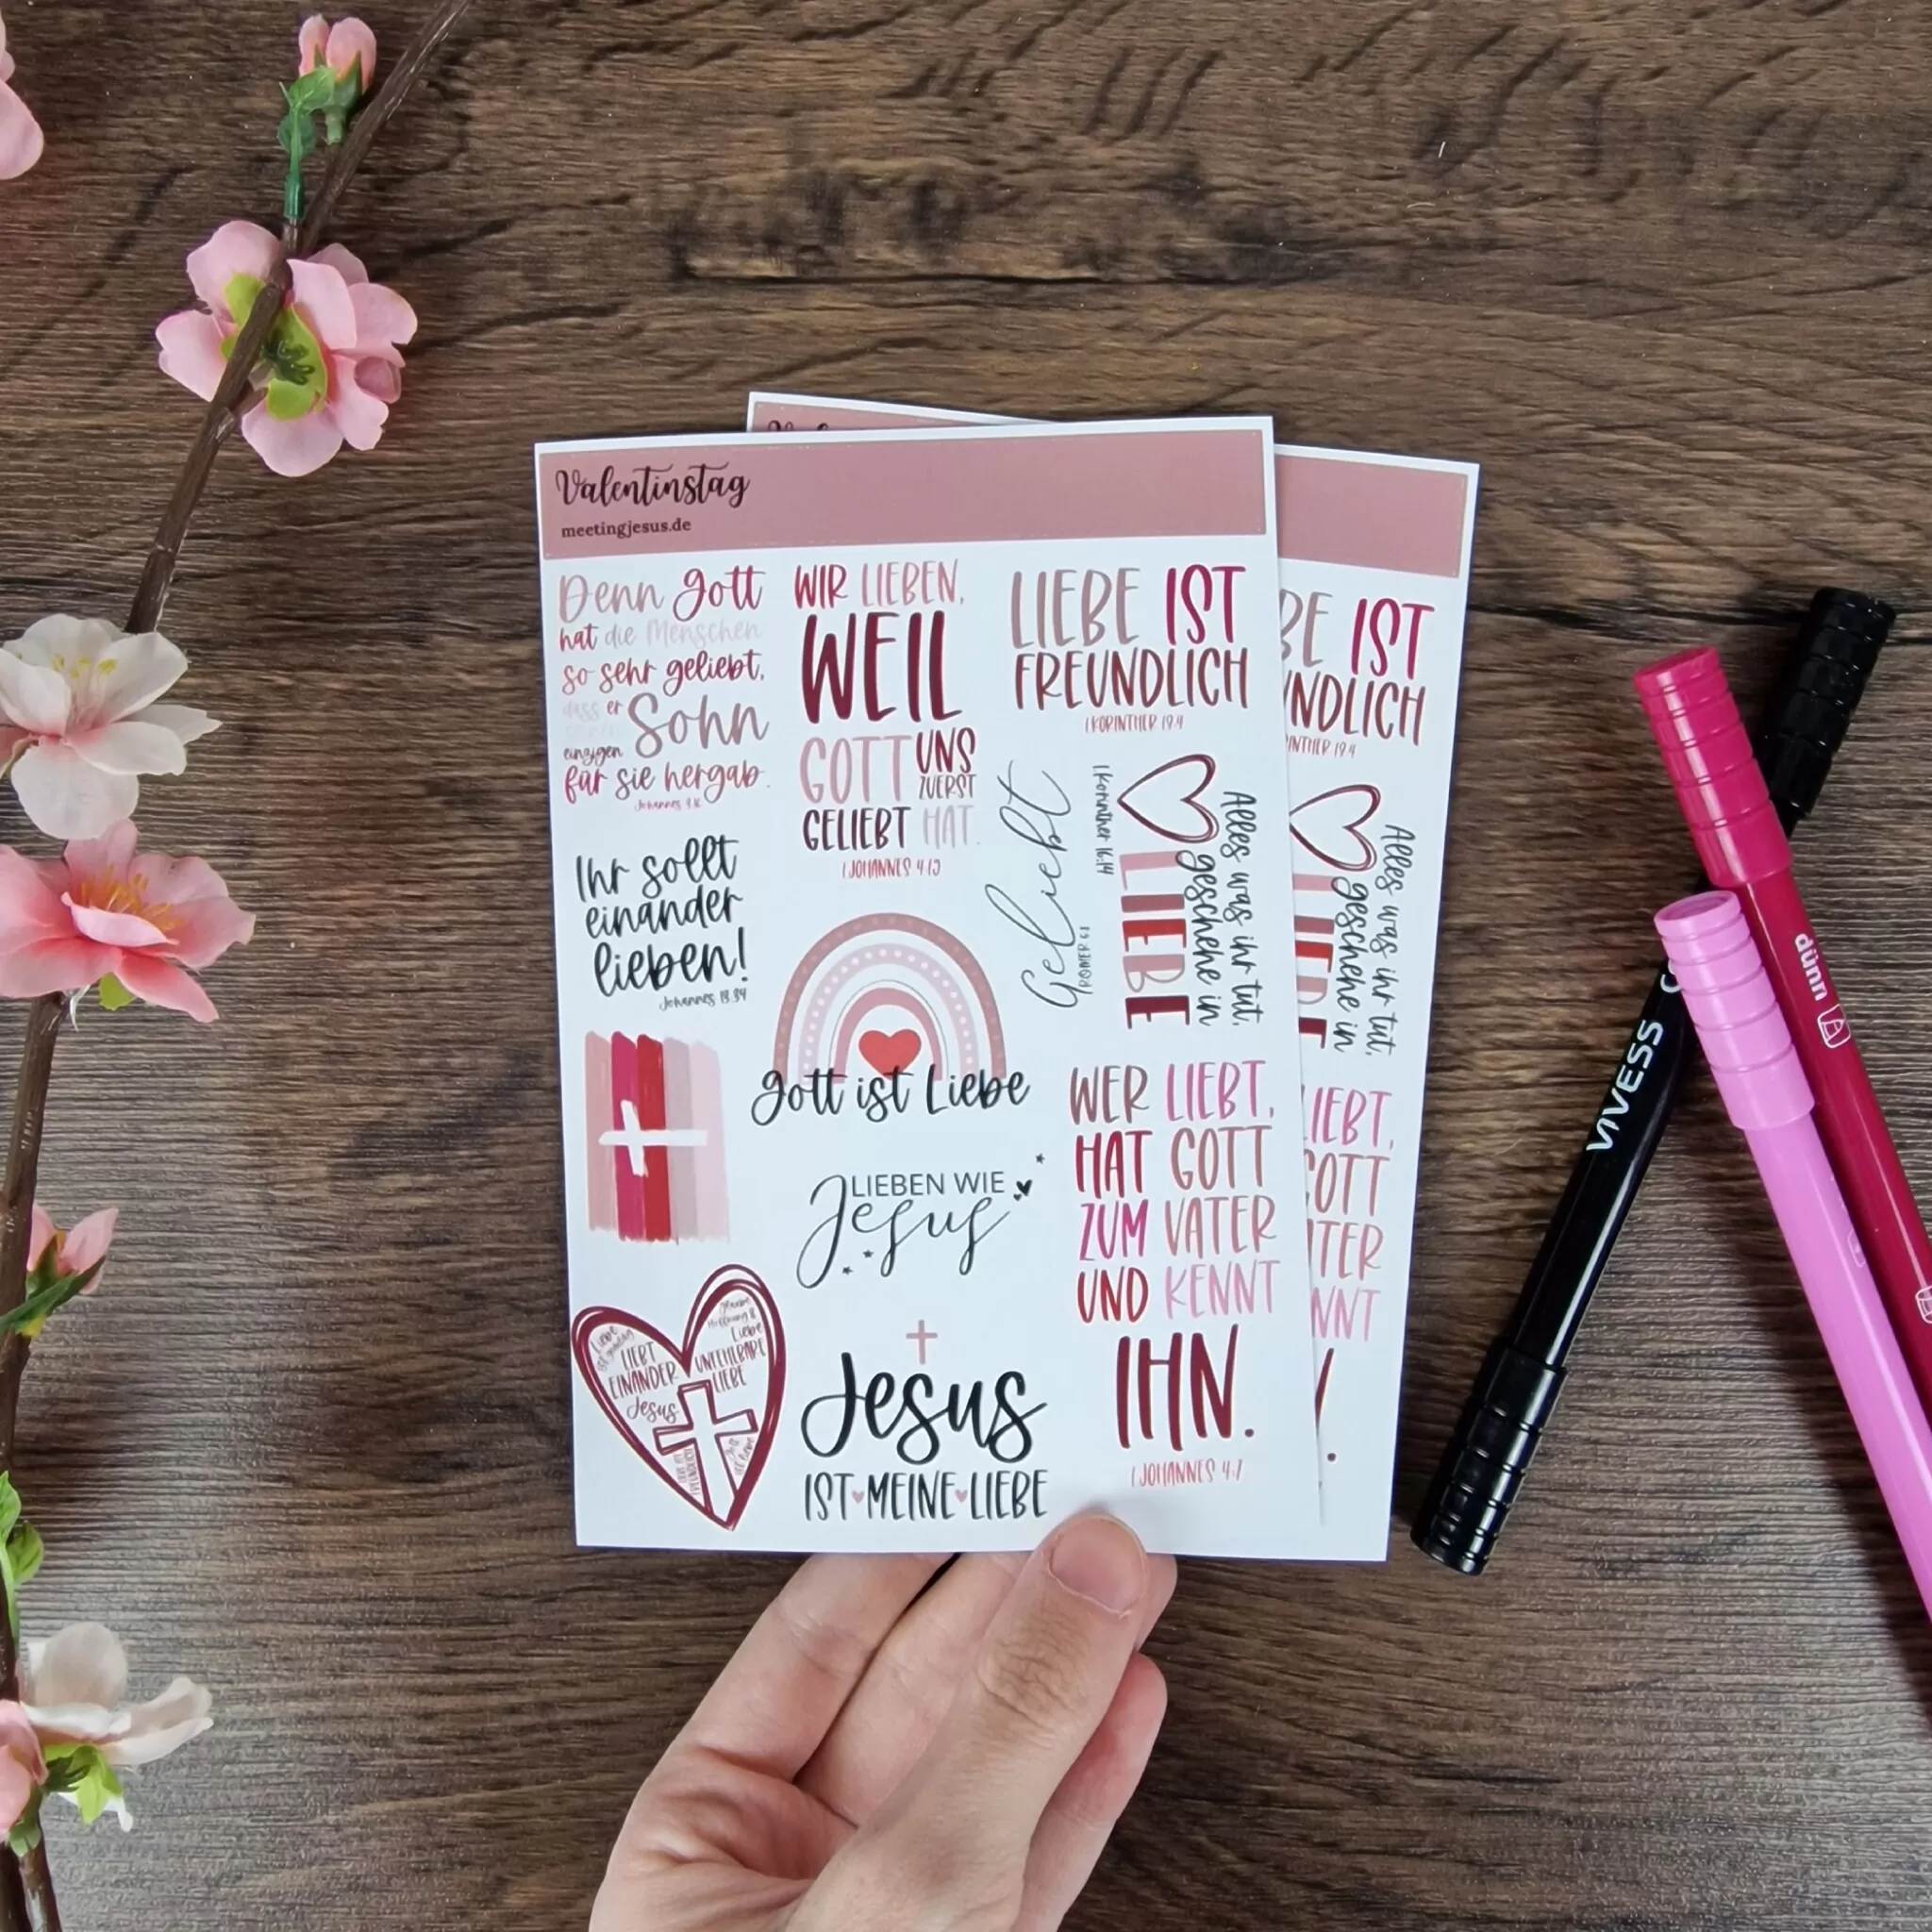 Valentinstag
meetingjesus.de
Denn Gott
hat die Menschen
so sehr geliebt,
dass er
seinen
einzigen Sohn
für sie hergab.
Johannes 3,16
WIR LIEBEN,
WEIL
GOTT UNS
ZUERST
GELIEBT HAT.
1 JOHANNES 4,19
LIEBE IST
FREUNDLICH
1 KORINTHER 13,4
Ihr sollt
einander
lieben!
Johannes 13,34
Geliebt
RÖMER 5,8
Alles was ihr tut,
geschehe in
LIEBE
1.Korinther 16,14
Gott ist Liebe
LIEBEN WIE
Jesus
WER LIEBT,
HAT GOTT
ZUM VATER
UND KENNT
IHN.
1 JOHANNES 4,7
Liebe
LIEBT
EINANDER
Jesus
Glaube
Hoffnung &
Liebe
UNFEHLBARE
LIEBE
Jesus
IST MEINE LIEBE
BE IST
NDLICH
INTHER 13,4
Alles was ihr tut,
geschehe in
LIEBE
IEBT,
GOTT
TER
NNT
VIVESS
dünn